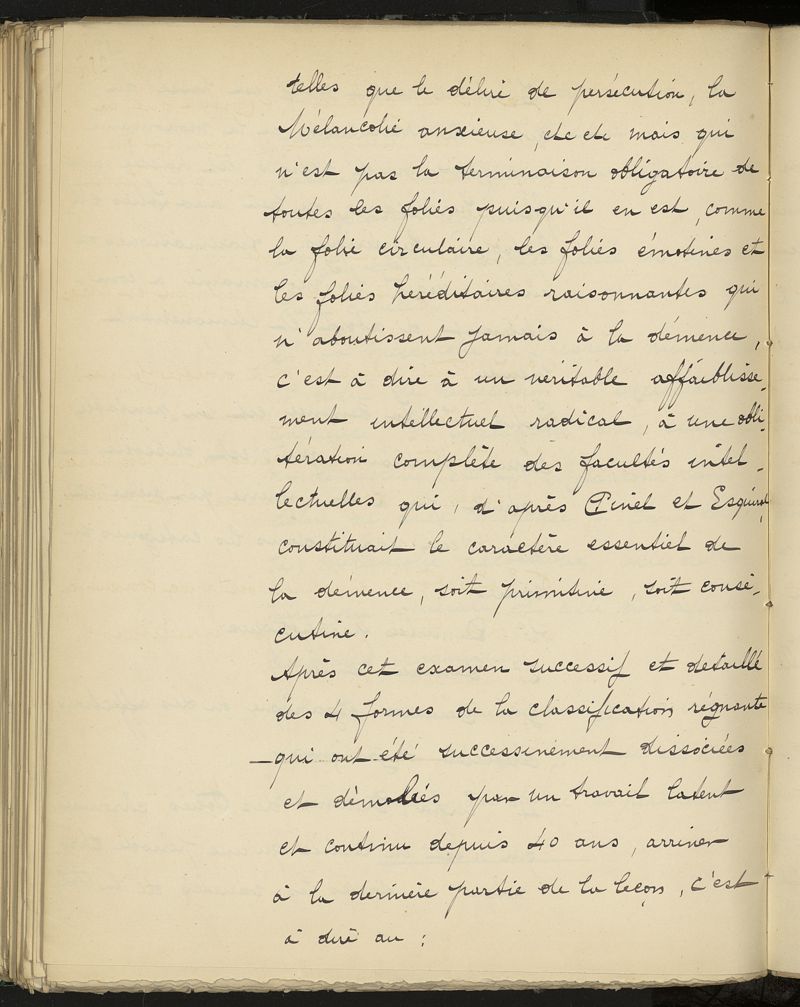 telles que le délire de persécution, la
Mélancolie anxieuse, etc etc mais qui
n'est pas la terminaison obligatoire de
toutes les folies puisqu'il en est, comme
la folie circulaire, les folies émotives et
les folies héréditaires raisonnantes qui
n'aboutissent jamais à la démence,
c'est à dire à un véritable affaiblisse-
ment intellectuel radical, à une obli-
tération complète des facultés intel-
lectuelles qui, d'après Pinel et Esquirol,
constituait le caractère essentiel de
la démence, soit primitive, soit consé-
cutive.
Après cet examen successif et detaillé
des 4 formes de la classification régnante
— qui ont été successivement dissociées
et démolies par un travail latent
et continu depuis 40 ans, arriver
à la dernière partie de la leçon, c'est
à dire au :